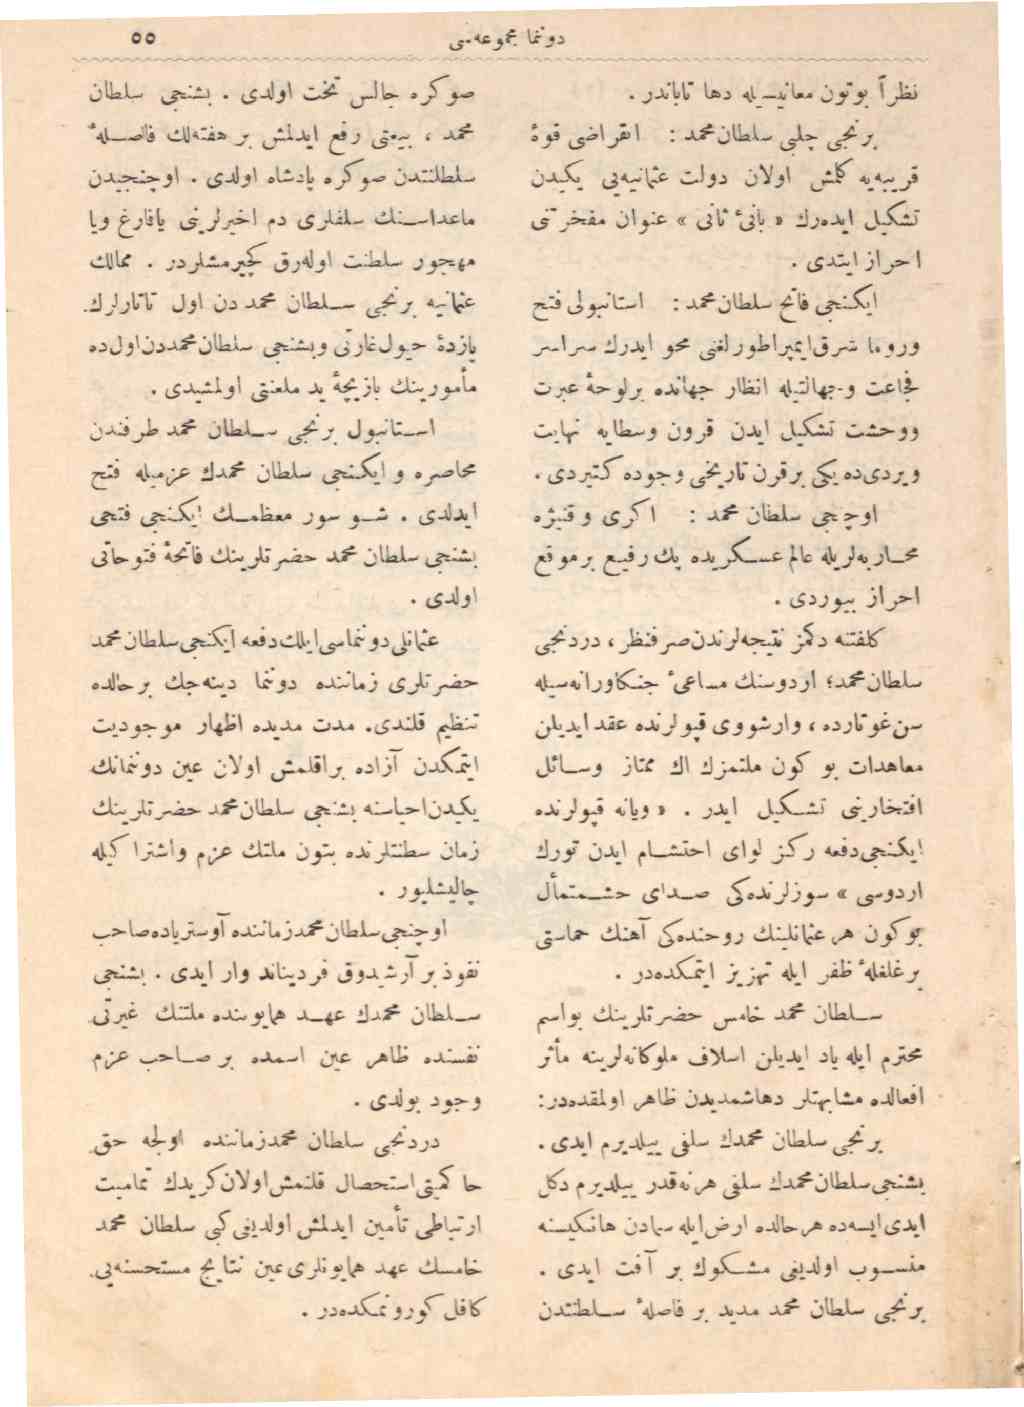 دوننما مجموعه‌سی
٥٥
نظراً بوتون معانیسیله دها تاباندر .
برنجی چلبی سلطان محمد : انقراضی قوهٔ
قریبه‌یه كلمش اولان دولت عثمانیه‌یی یكیدن
تشكیل ایده‌رك « بانیٔ ثانی » عنوان مفخرتنی
احراز ایتدی .
ایكنجی فاتح سلطان محمد : استانبولی فتح
وروما شرق ایمپراطورلغنی محو ایدرك سراسر
فجاعت و جهالتیله انظار جهانده برلوحهٔ عبرت
ووحشت تشكیل ایدن قرون وسطایه نهایت
ویردی‌ده یكی برقرن تاریخی وجوده كتیردی .
اوچنجی سلطان محمد : اكری و قنیژه
محاربه‌لریله عالم عسكریده پك رفیع برموقع
احراز بیوردی .
كلفتنه دكمز نتیجه‌لرندن صرفنظر ، دردنجی
سلطان محمد؛ اردوسنك مساعیٔ جنكاورانه‌سیله
سن‌غوتارده ، وارشووی قپولرنده عقد ایدیلن
معاهدات بو كون ملتمزك اك ممتاز وسائل
افتخارینی تشكیل ایدر . « ویانه قپولرنده
ایكنجی‌دفعه ركز لوای احتشام ایدن تورك
اردوسی » سوزلرنده‌كی صدای حشمتمأل
بوكون هر عثمانلینك روحنده‌كی آهنك حماستی
برغلغلهٔ ظفر ایله تهزیز ایتمكده‌در .
سلطان محمد خامس حضرتلرینك بواسم
محترم ایله یاد ایدیلن اسلاف ملوكانه‌لرینه مأثر
افعالده مشابهتلر دهاشمدیدن ظاهر اولمقده‌در:
برنجی سلطان محمدك سلفی ییلدیرم ایدی .
بشنجی سلطان محمدك سلفی هرنه‌قدر ییلدیرم دكل
ایدی ایسه‌ده هرحالده ارض ایله سمادن هانكیسنه
منسوب اولدیغی مشكوك بر آفت ایدی .
برنجی سلطان محمد مدید بر فاصلهٔ سلطنتدن
صوكره جالس تخت اولدی . بشنجی سلطان
محمد ، بیعتی رفع ایدلمش بر هفته‌لك فاصلهٔ
سلطنتدن صوكره پادشاه اولدی . اوچنجیدن
ماعداسنك سلفلری دم اخیرلرینی یافارغ ویا
مهجور سلطنت اوله‌رق كچیرمشلردر . ممالك
عثمانیه برنجی سلطان محمد دن اول تاتارلرك
یازدهٔ خیول‌غارتی وبشنجی سلطان محمددن اول‌ده
مأمورینك بازیچهٔ ید ملعنتی اولمشیدی .
استانبول برنجی سلطان محمد طرفندن
محاصره و ایكنجی سلطان محمدك عزمیله فتح
ایدلدی . شو سور معظمك ایكنجی فتحی
بشنجی سلطان محمد حضرتلرینك فاتحهٔ فتوحاتی
اولدی .
عثمانلی دوننماسی ایلك دفعه ایكنجی سلطان محمد
حضرتلری زماننده دوننما دینه‌جك برحالده
تنظیم قلندی. مدت مدیده اظهار موجودیت
ایتمكدن آزاده براقلمش اولان عین دوننمانك
یكیدن احیاسنه بشنجی سلطان محمد حضرتلرینك
زمان سطنتلرنده بتون ملتك عزم واشتراكیله
چالیشلیور .
اوچنجی سلطان محمدزماننده آوستریاده صاحب
نفوذ بر آرشیدوق فردیناند وار ایدی . بشنجی
سلطان محمدك عهد همایوننده ملتنك غیرتی
نفسنده ظاهر عین اسمده بر صاحب عزم
وجود بولدی .
دردنجی سلطان محمدزماننده اولجه حق
حاكمیتی استحصال قلنمش اولان كریدك تمامیت
ارتباطی تأمین ایدلمش اولدیغی كبی سلطان محمد
خامسك عهد همایونلری عین نتایج مستحسنه‌یی
كافل كورونمكده‌در .